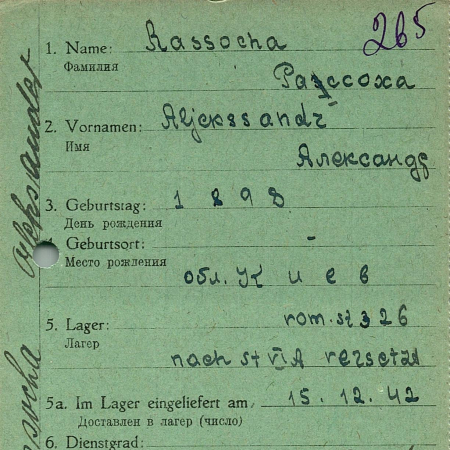 265
1. Name: Rassocha
Фамилия
Рассоха
2. Vornamen: Aljekssandr
Имя
Александр
3. Geburtstag: 1898
День рождения
Geburtsort: –
Место рождения
обл. Киев
5. Lager: rom. st 326
Лагер
nach st VI A versetzt
5a. Im Lager eingeliefert am 15.12.42
Доставлен в лагер (число)
6. Dienstgrad: